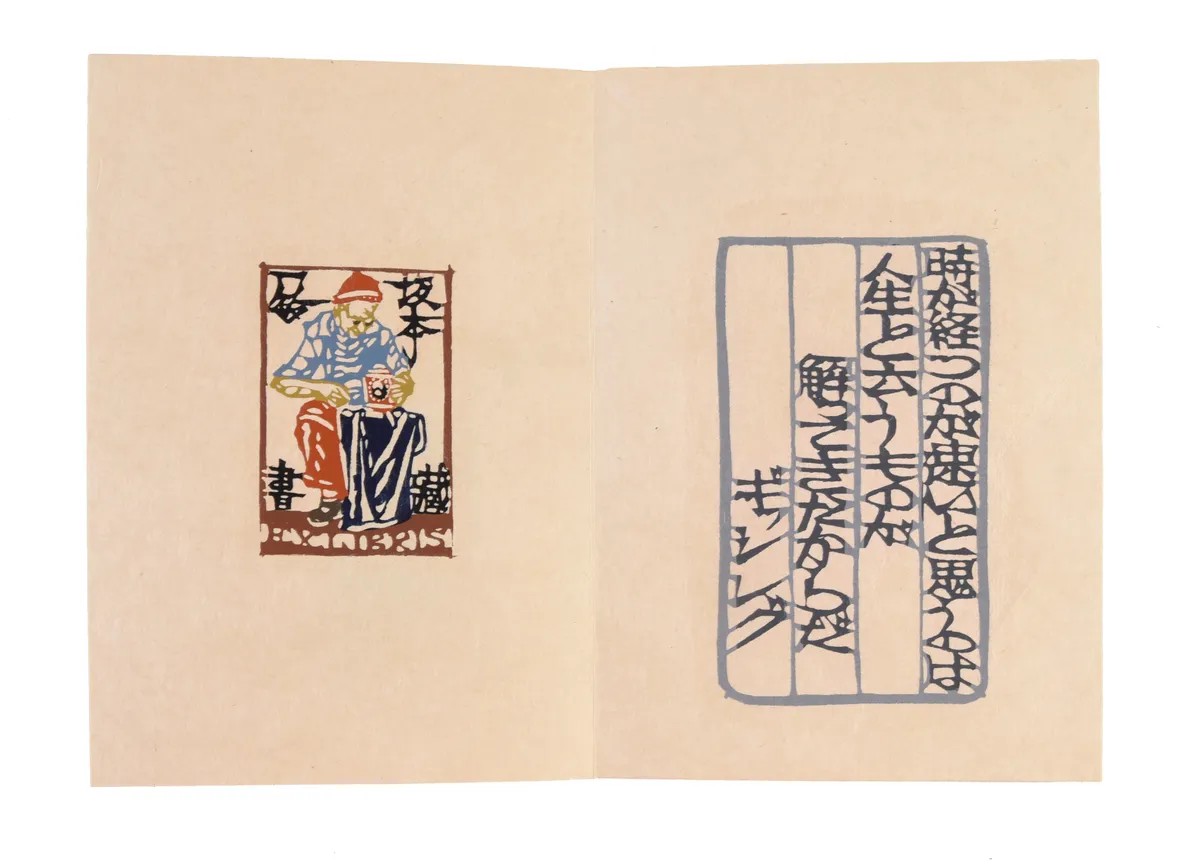 坂本
藏
書
EXLIBRIS
時が経つのが速いと思うのは
人生と云うものが
解ってきたからだ
ギッシング